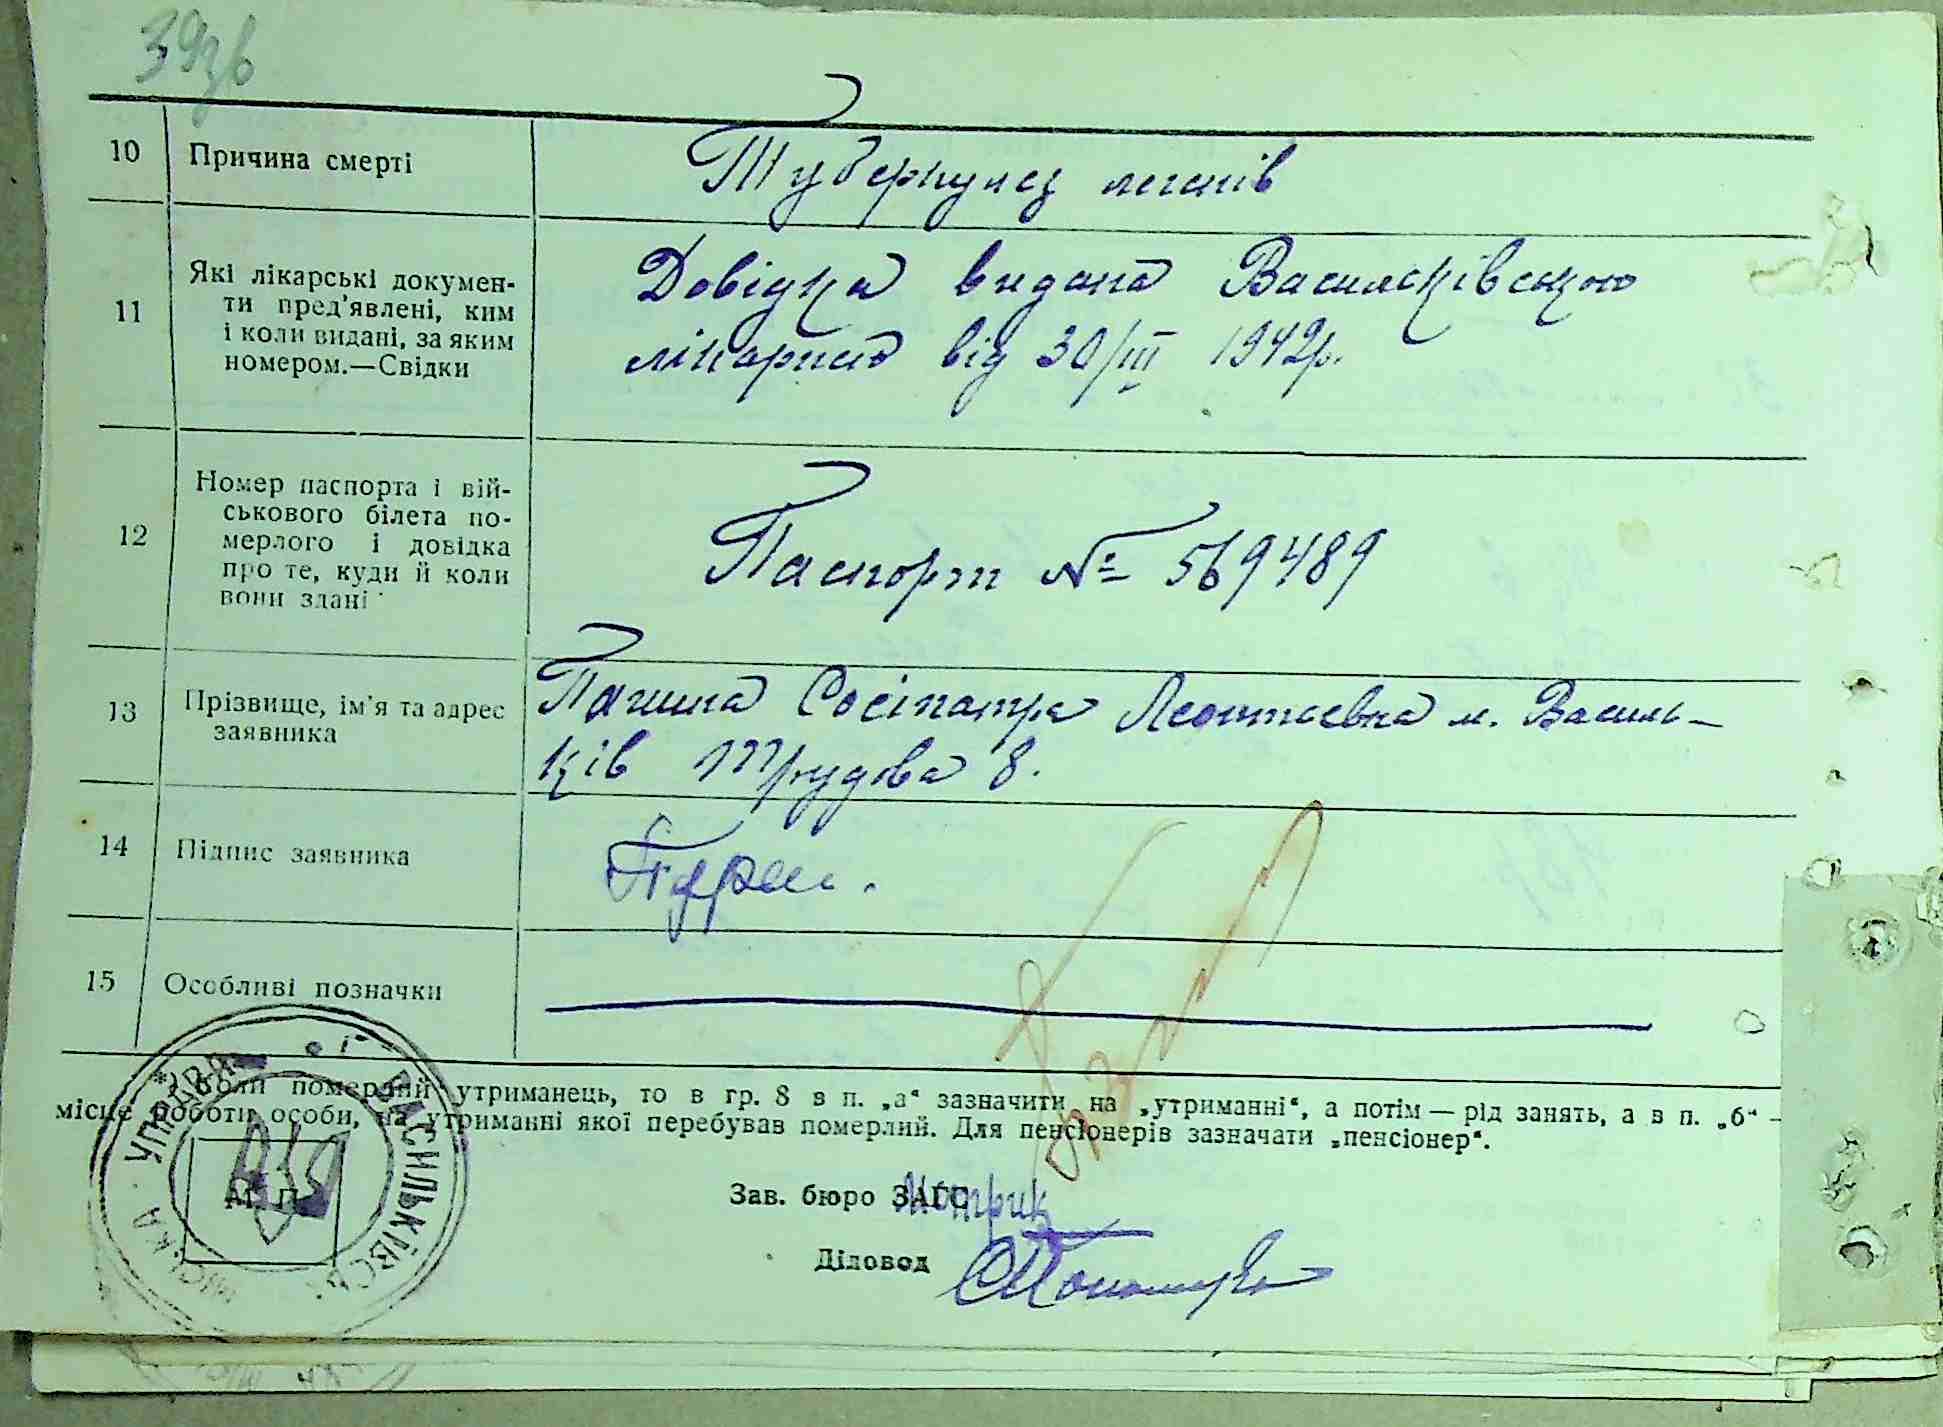 39зв
10 Причина смерті Туберкульоз легенів
11 Які лікарські докумен-
ти пред'явлені, ким
і коли видані, за яким
номером.—Свідки
Довідка видана Васильківською
лікарнею від 30/III 1942р.
12 Номер паспорта і вій-
ськового білета по-
мерлого і довідка
про те, куди й коли
вони здані
Паспорт № 569489
13 Прізвище, ім'я та адрес
заявника
Сосіпатра Леонтієвна м. Василь-
ків Трудова 8.
14 Підпис заявника
15 Особливі позначки
*) Коли померлий утриманець, то в гр. 8 в п. „а“ зазначити на „утриманні“, а потім — рід занять, а в п. „б“ -
місце роботи особи, на утриманні якої перебував померлий. Для пенсіонерів зазначати „пенсіонер“.
М. П.
ВАСИЛЬКІВСЬКА МІСЬКА УПРАВА
Зав. бюро ЗАГС
Діловод